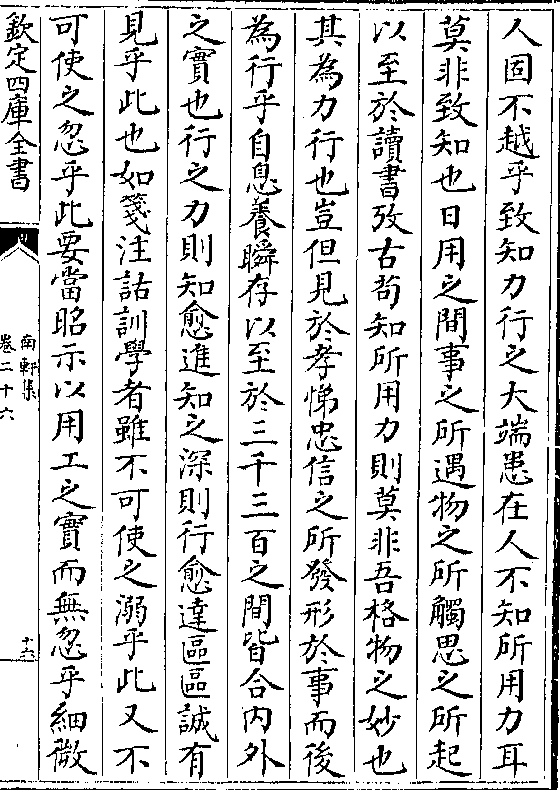 人固不越乎致知力行之大端患在人不知所用力耳
莫非致知也日用之間事之所遇物之所觸思之所起
以至於讀書攷古苟知所用力則莫非吾格物之妙也
其為力行也豈但見於孝悌忠信之所發形於事而後
為行乎自息養瞬存以至於三千三百之間皆合内外
之實也行之力則知愈進知之深則行愈達區區誠有
見乎此也如箋注詁訓學者雖不可使之溺乎此又不
可使之忽乎此要當昭示以用工之實而無忽乎細微
欽定四庫全書
南軒集
卷二十六
十六